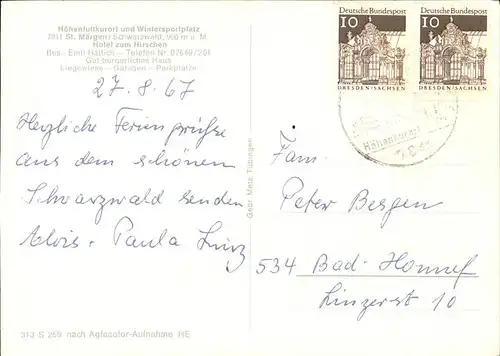 Höhenluftkurort und Wintersportplatz
7811 St. Märgen/Schwarzwald, 900 m ü. M.
Hotel zum Hirschen
Bes.: Emil Hättich – Telefon Nr. 07669/201
Gut bürgerliches Haus
Liegewiese – Garagen – Parkplätze
27.8.67
Herzliche Ferien grüße
aus dem schönen
Schwarzwald senden
Alois + Paula Linz
313 S 269 nach Agfacolor-Aufnahme HE
Gebr. Metz, Tübingen
Deutsche Bundespost
10
DRESDEN/SACHSEN
Deutsche Bundespost
10
DRESDEN/SACHSEN
Höhenkurort
Fam.
Peter Bergen
534 Bad-Honnef
Linzerst 10